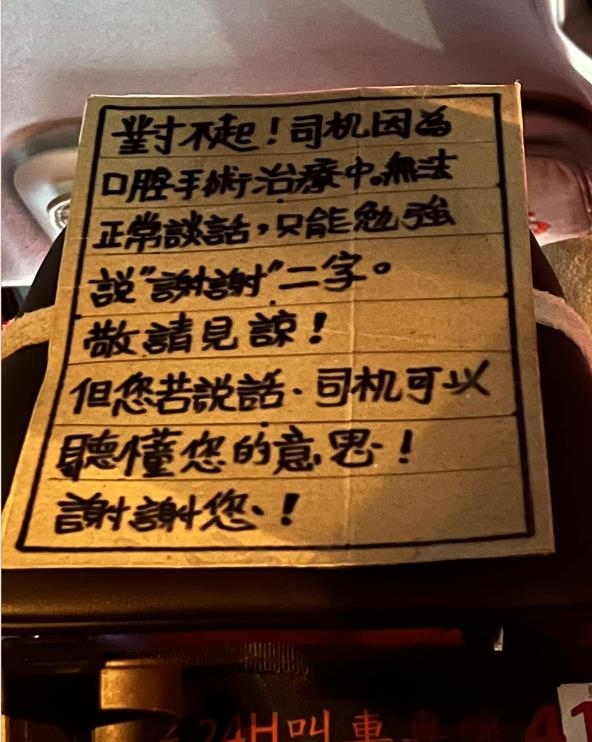 對不起！司机因為
口腔手術治療中。無法
正常談話，只能勉強
說"謝謝"二字。
敬請見諒！
但您若說話、司机可以
聽懂您的意思！
謝謝您！
24H叫車專線